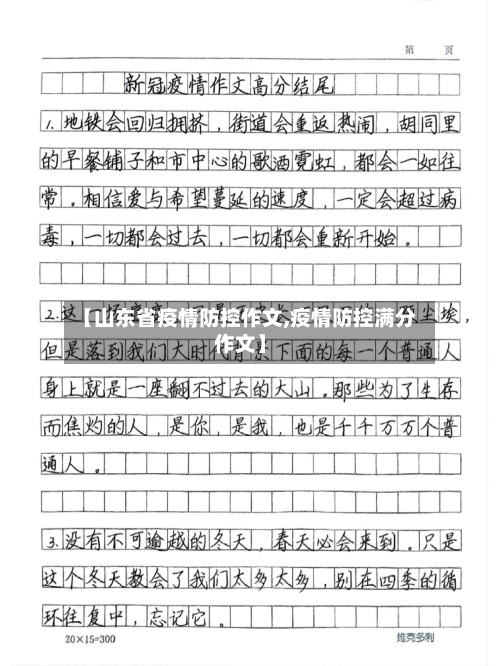 第 页
新冠疫情作文高分结尾
1.地铁会回归拥挤，街道会重返热闹，胡同里
的早餐铺子和市中心的歌酒霓虹，都会一如往
常。相信爱与希望蔓延的速度，一定会超过病
毒，一切都会过去，一切都会重新开始。
2.这
尘埃，
【山东省疫情防控作文,疫情防控满分
作文】
但是落到我们大时代
下面的每一个普通人
身上就是一座翻不过去的大山。那些为了生存
而焦灼的人，是你，是我，也是千千万万个普
通人。
3.没有不可逾越的冬天，春天必会来到。只是
这个冬天教会了我们太多太多，别在四季的循
环往复中，忘记它。
20×15=300
维克多利